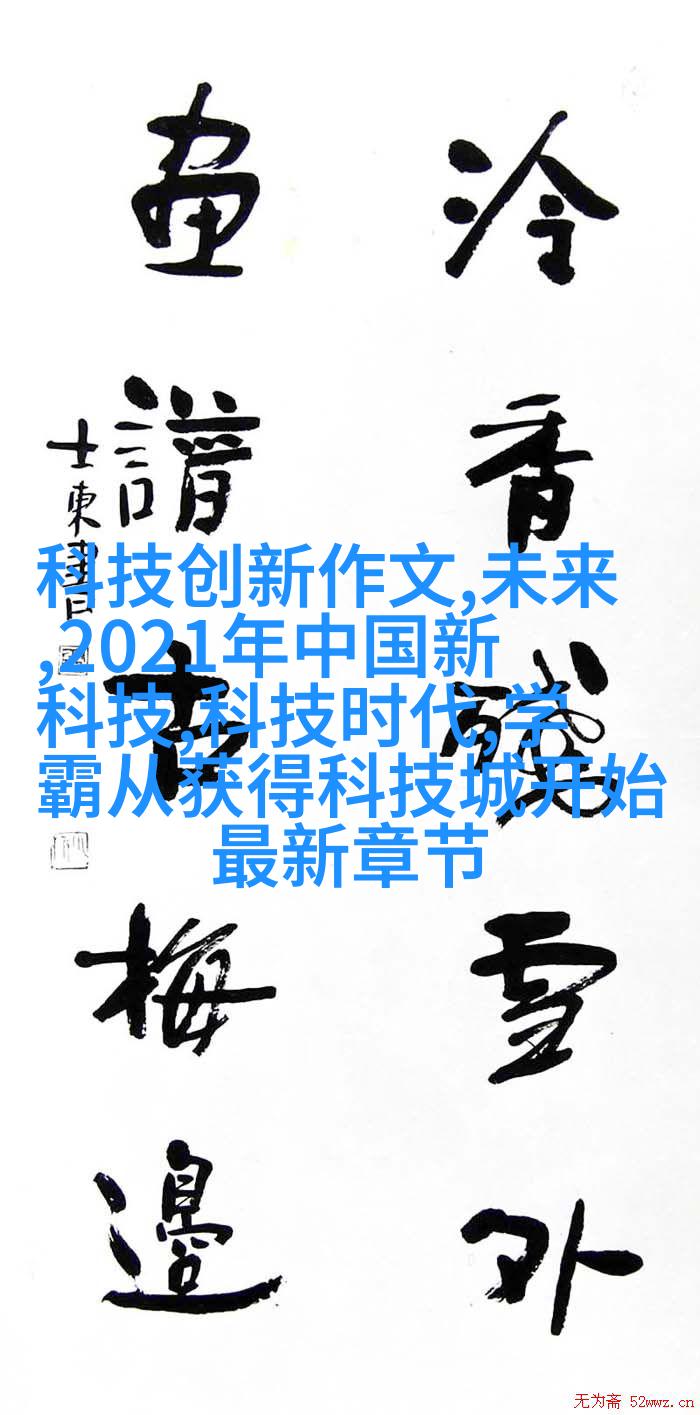 冷香殘雪外
畫譜古梅邊
士東書
科技创新作文,未来
,2021年中国新
科技,科技时代,学
霸从获得科技城开始
最新章节
无为斋 52wwz.cn